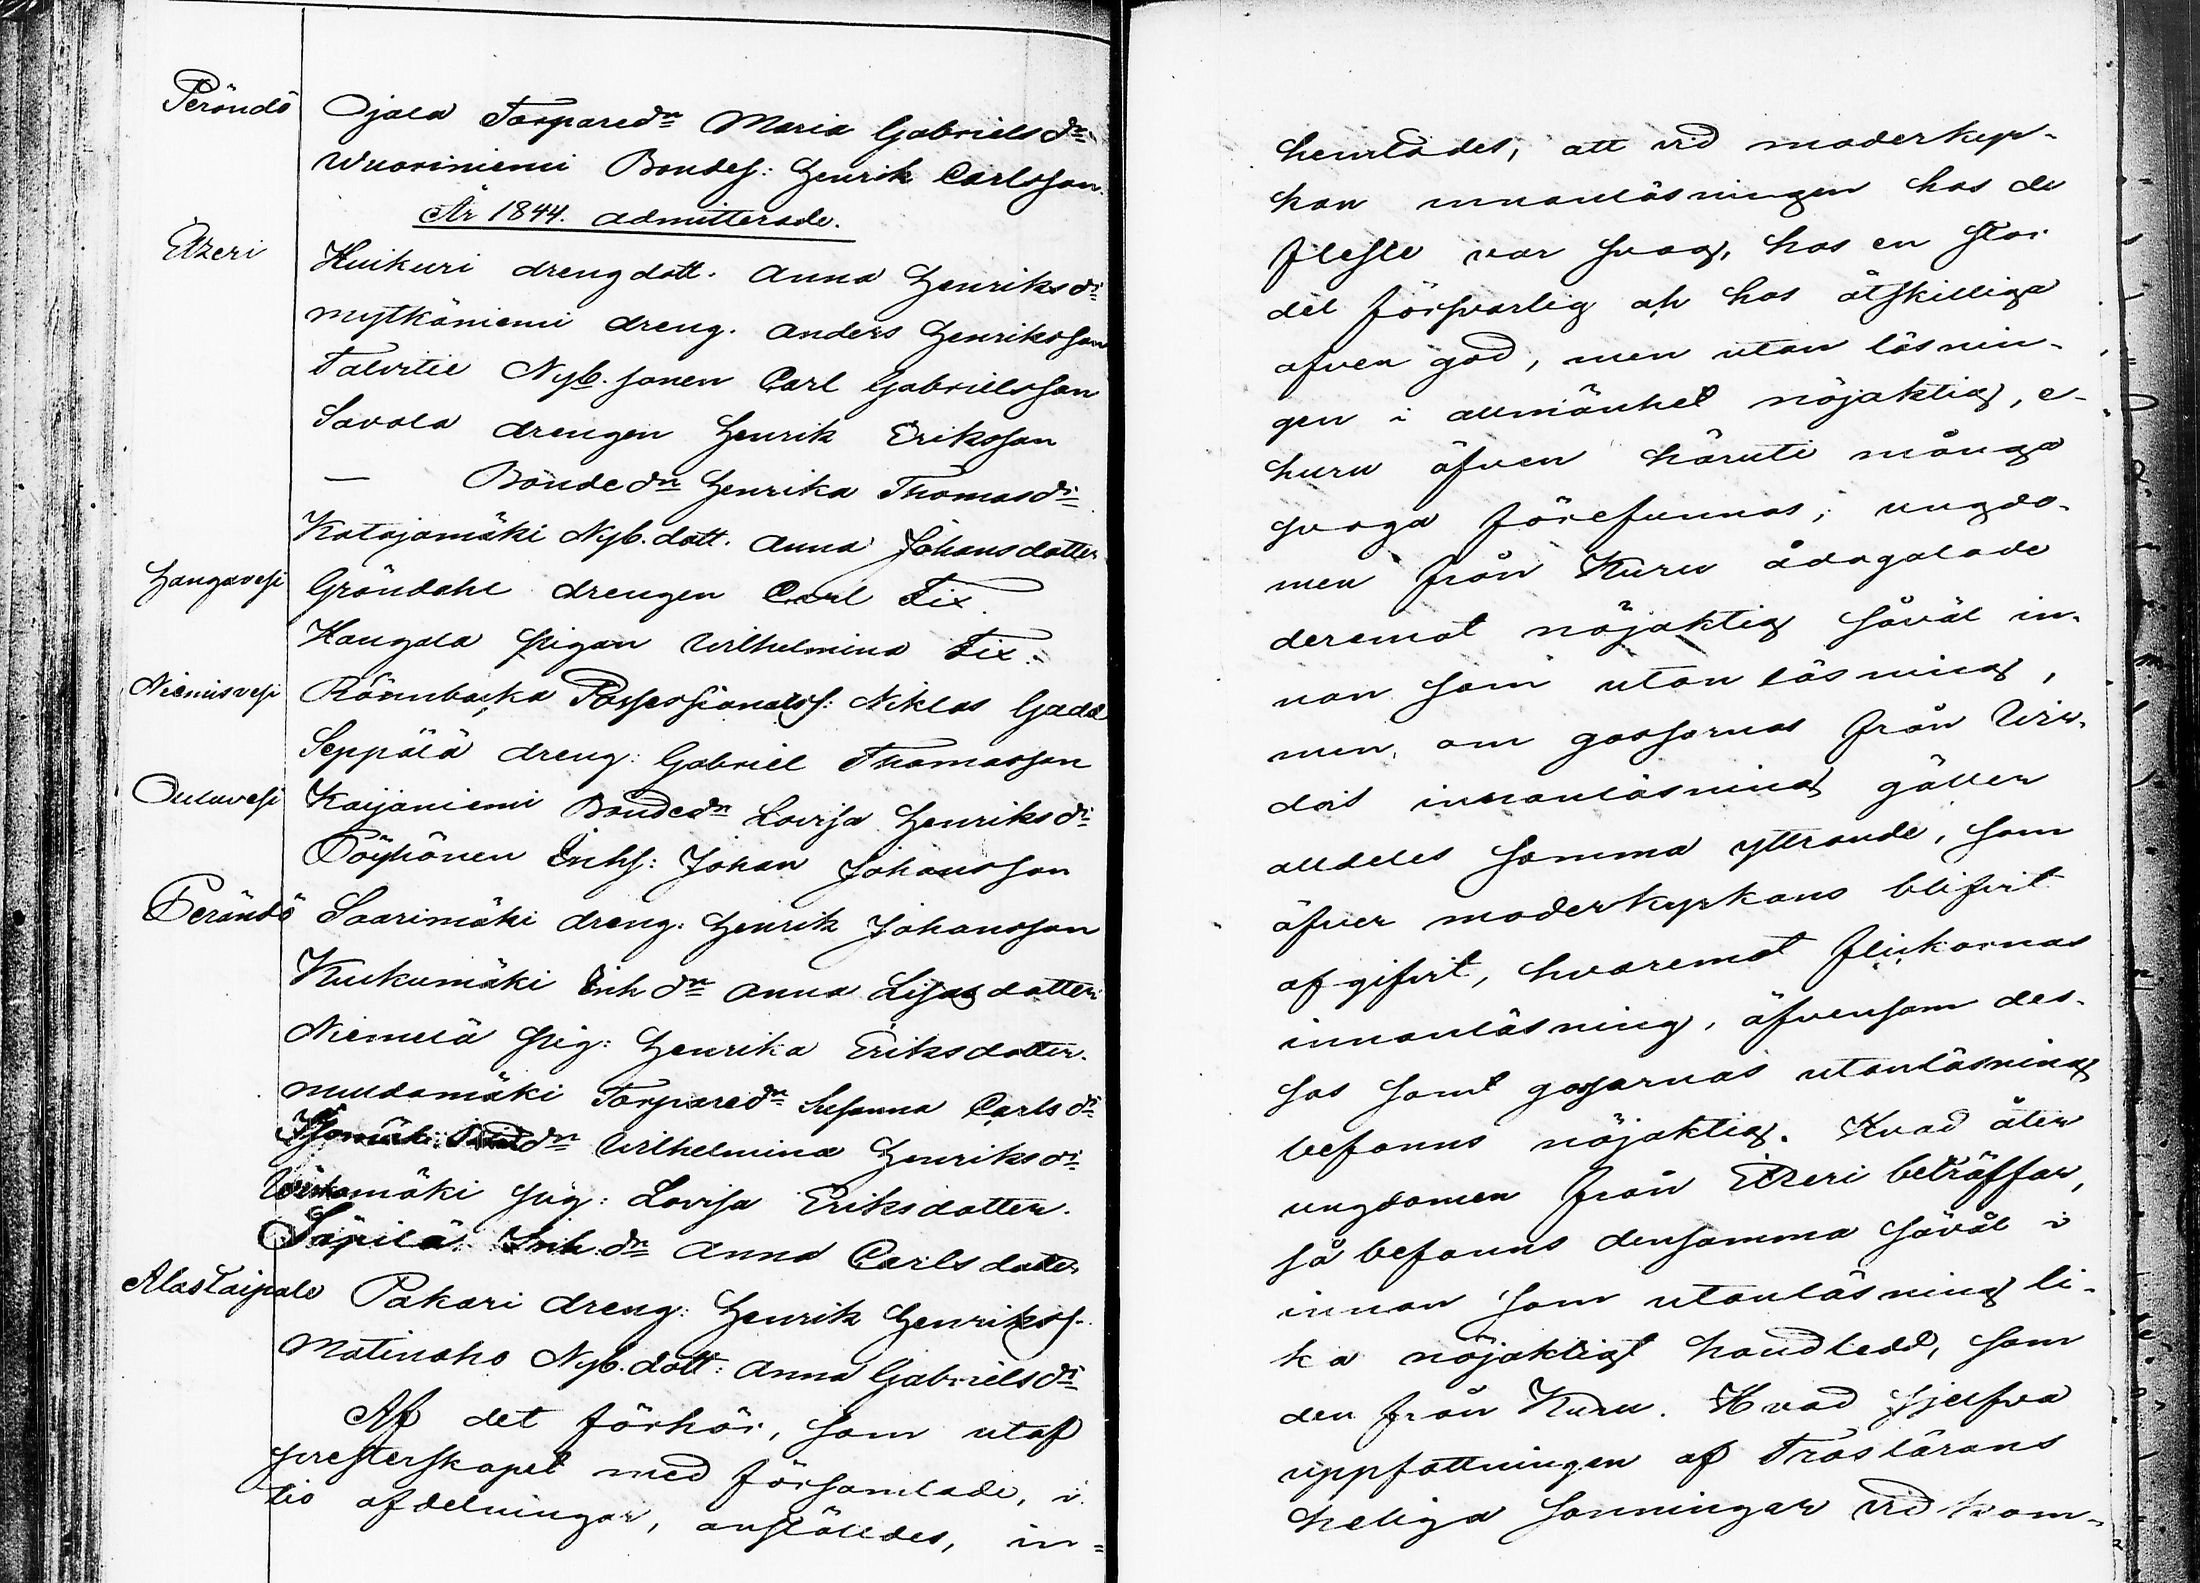 Peröndö Ojala Torparedr Maria Gabrielsdr
Wuoriniemi Bondes: Henrik Carlsson.
År 1844. admitterade.
Etzeri Huikuri drengdott. Anna Henriksdr
Mytköniemi dreng. Anders Henriksson
Talvitie Nyb. sonen Carl Gabrielsson
Savola drengen Henrik Eriksson
— Bondedr Henrika Thomasdr
Katajamäki Nyb. dott. Anna Johansdotter
Hangavesi Gröndahl drengen Carl Fix.
Kangala pigan Wilhelmina Fix.
Niemisvesi Rönnbacka Possessionats: Niklas Gadd
Seppälä dreng: Gabriel Thomasson
Ouluvesi Kaijaniemi Bondedr Lovisa Henriksdr
Pöyhönen Inhs: Johan Johansson
Peröndö Saarimäki dreng: Henrik Johansson
Kukumäki Inhdr Anna Lisa dotter
Niemelä pig: Henrika Eriksdotter.
Multamäki Torparedr Susanna Carlsdr
dr Wilhelmina Henriksdr
pig: Lovisa Eriksdotter.
Säpilä Inh. dr Anna Carlsdotter
Alastaipale Pakari dreng: Henrik Henrikss.
Matinaho Nyb. dott: Anna Gabrielsdr
Af det förhör, som utaf
presterskapet med församlade, i
tio afdelningar, anställdes, in=
hemtades, att vid moderkyr-
kan innanläsningen hos de
fleste var svag, hos en stor
del försvarlig och hos åtskilliga
äfven god, men utan läsnin-
gen i allmänhet nöjaktig, e-
huru äfven häruti många
svaga förefunnos; ungdo-
men från Kuru ådagalade
deremot nöjaktig såväl in-
nan som utan läsning,
men, om gossarnas från Wir-
dois innanläsning gäller
alldeles samma yttrande, som
öfver moderkyrkans blifvit
afgifvit, hvaremot flickornas
innanläsning, äfvensom des-
sas samt gossarnas utanläsning
befanns nöjaktig. Hvad åter
ungdomen från Etzeri beträffar,
så befanns densamma såväl i
innan som utanläsning li-
ka nöjaktigt handledd, som
den från Kuru. Hvad sjelfva
uppfattningen af Troslärans
heliga sanningar vidkom-